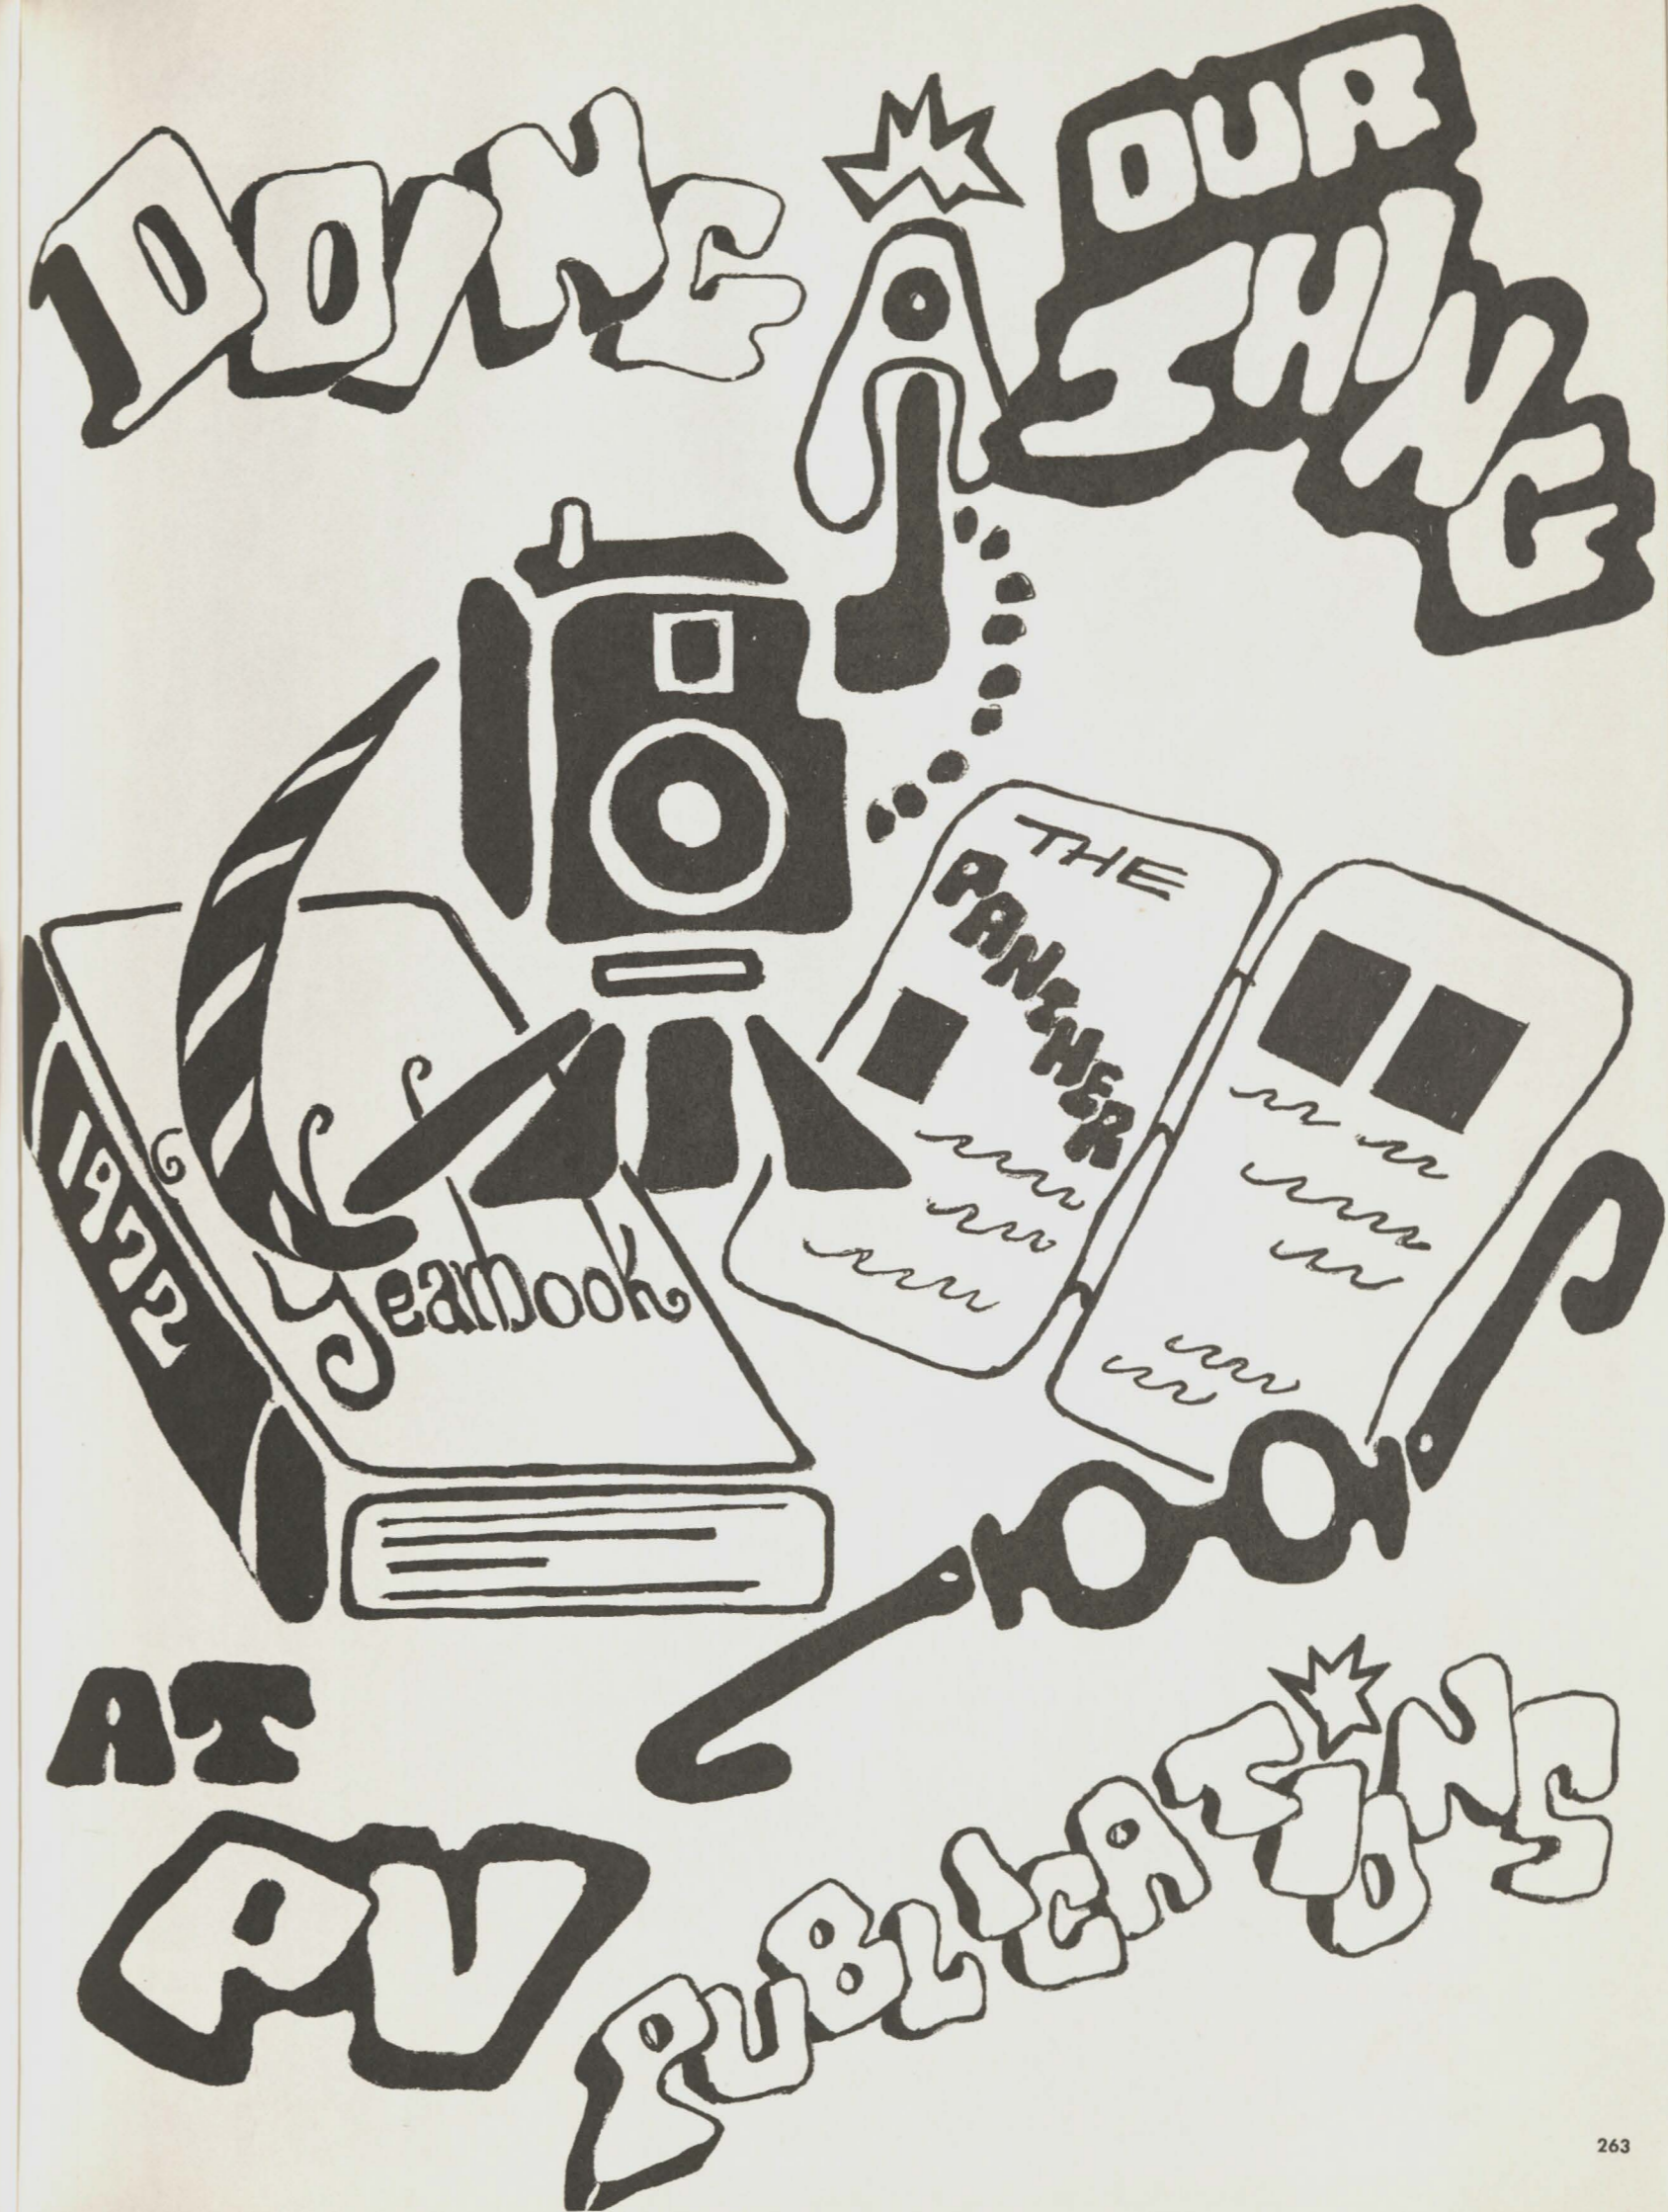 DOING
OUR
THING
THE
PANTHER
1972
Yearbook
AT
PV
PUBLICATIONS
263